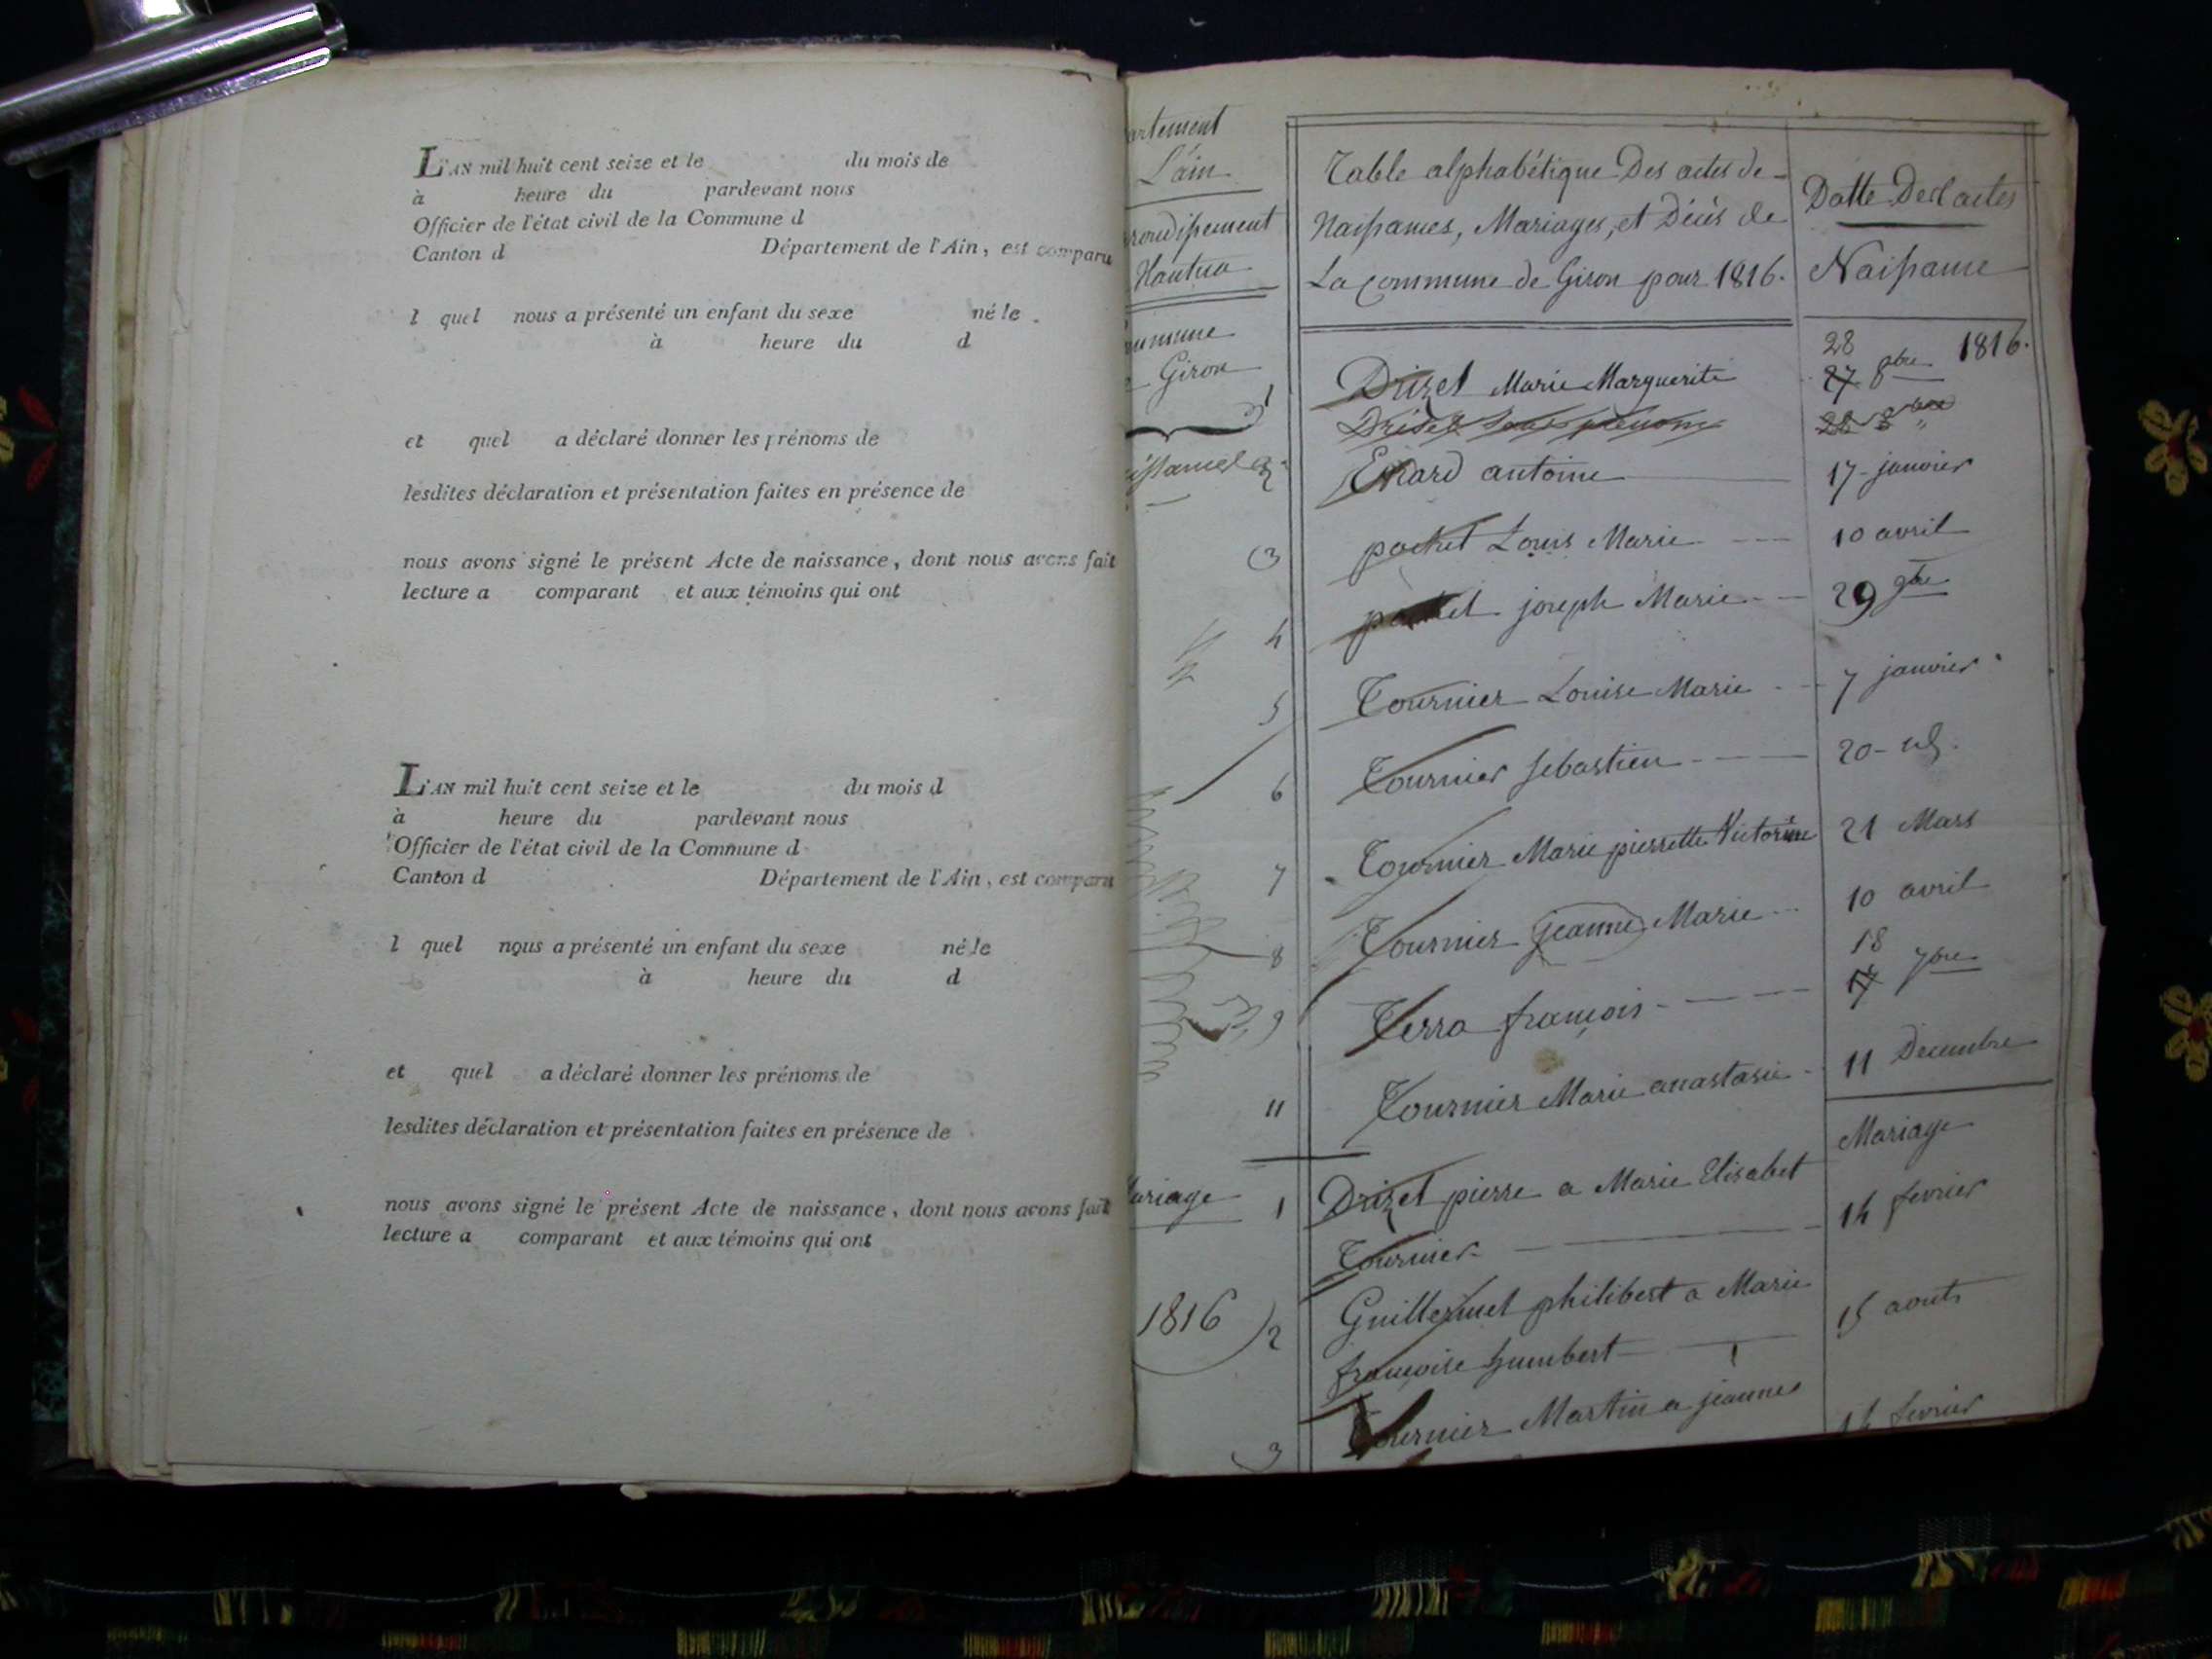 L'AN mil huit cent seize et le du mois de
à heure du pardevant nous
Officier de l'état civil de la Commune d
Canton d Département de l'Ain, est comparu
l quel nous a présenté un enfant du sexe né le
à heure du d
et quel a déclaré donner les prénoms de
lesdites déclaration et présentation faites en présence de
nous avons signé le présent Acte de naissance, dont nous avons fait
lecture a comparant et aux témoins qui ont
L'AN mil huit cent seize et le du mois d
à heure du pardevant nous
Officier de l'état civil de la Commune d
Canton d Département de l'Ain, est comparu
l quel nous a présenté un enfant du sexe né le
à heure du d
et quel a déclaré donner les prénoms de
lesdites déclaration et présentation faites en présence de
nous avons signé le présent Acte de naissance, dont nous avons fait
lecture a comparant et aux témoins qui ont
artement
L'ain
Nantua
Giron
Table alphabétique Des actes de
Naissances, Mariages, et Décès de
La Commune de Giron pour 1816.
Datte Des actes
Naissance
1 Drizet Marie Marguerite 28 27 8bre 1816.
2 Evrard antoine 17 janvier
3 pochet Louis Marie 10 avril
4 pochet joseph Marie 29 9bre
5 Tournier Louise Marie 7 janvier
6 Tournier Sebastien 20
7 Tournier Marie pierrette Victorine 21 Mars
8 Tournier jeanne Marie 10 avril
9 Terra françois 18 17 7bre
11 Tournier Marie anastasie 11 Decembre
Mariage
ariage 1 Drizet pierre a Marie Elisabet
Tournier 14 fevrier
1816 2 Guillermet philibert a Marie
françoise humbert 15 aout
3 Tournier Martin a jeanne 14 fevrier